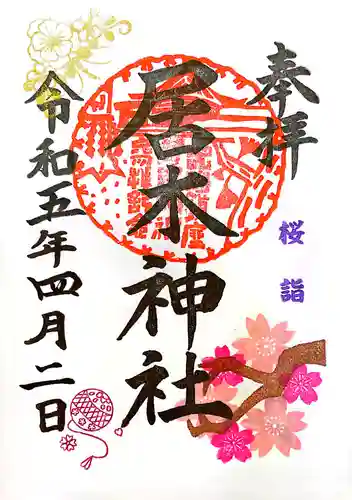 奉拝
桜詣
居木神社
令和五年四月二日